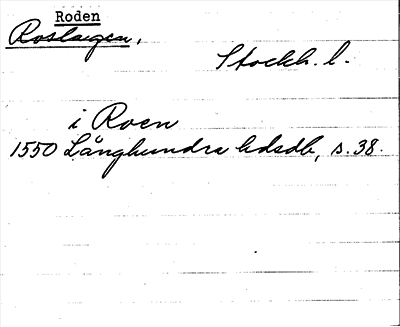 Roden
Roslagen,
Stockh. l.
i Roen
1550 Långhundra hdsdb, s. 38.